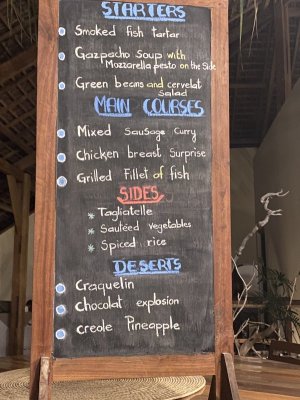 STARTERS
Smoked fish tartar
Gazpacho Soup with
Mozzarella pesto on the Side
Green beans and cervelat
Salad
MAIN COURSES
Mixed Sausage Curry
Chicken breast Surprise
Grilled Fillet of fish
SIDES
* Tagliatelle
* Sauléed vegetables
* Spiced rice
DESERTS
Craquelin
Chocolat explosion
creole Pineapple